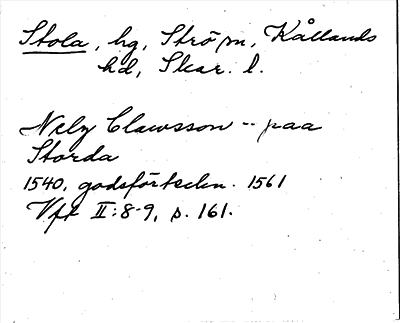 Stola, hg, Strö sn, Kållands
hd, Skar. l.
Nely Clawsson -- paa
Storda
1540, godsförteckn. 1561
Vft II:8-9, s. 161.